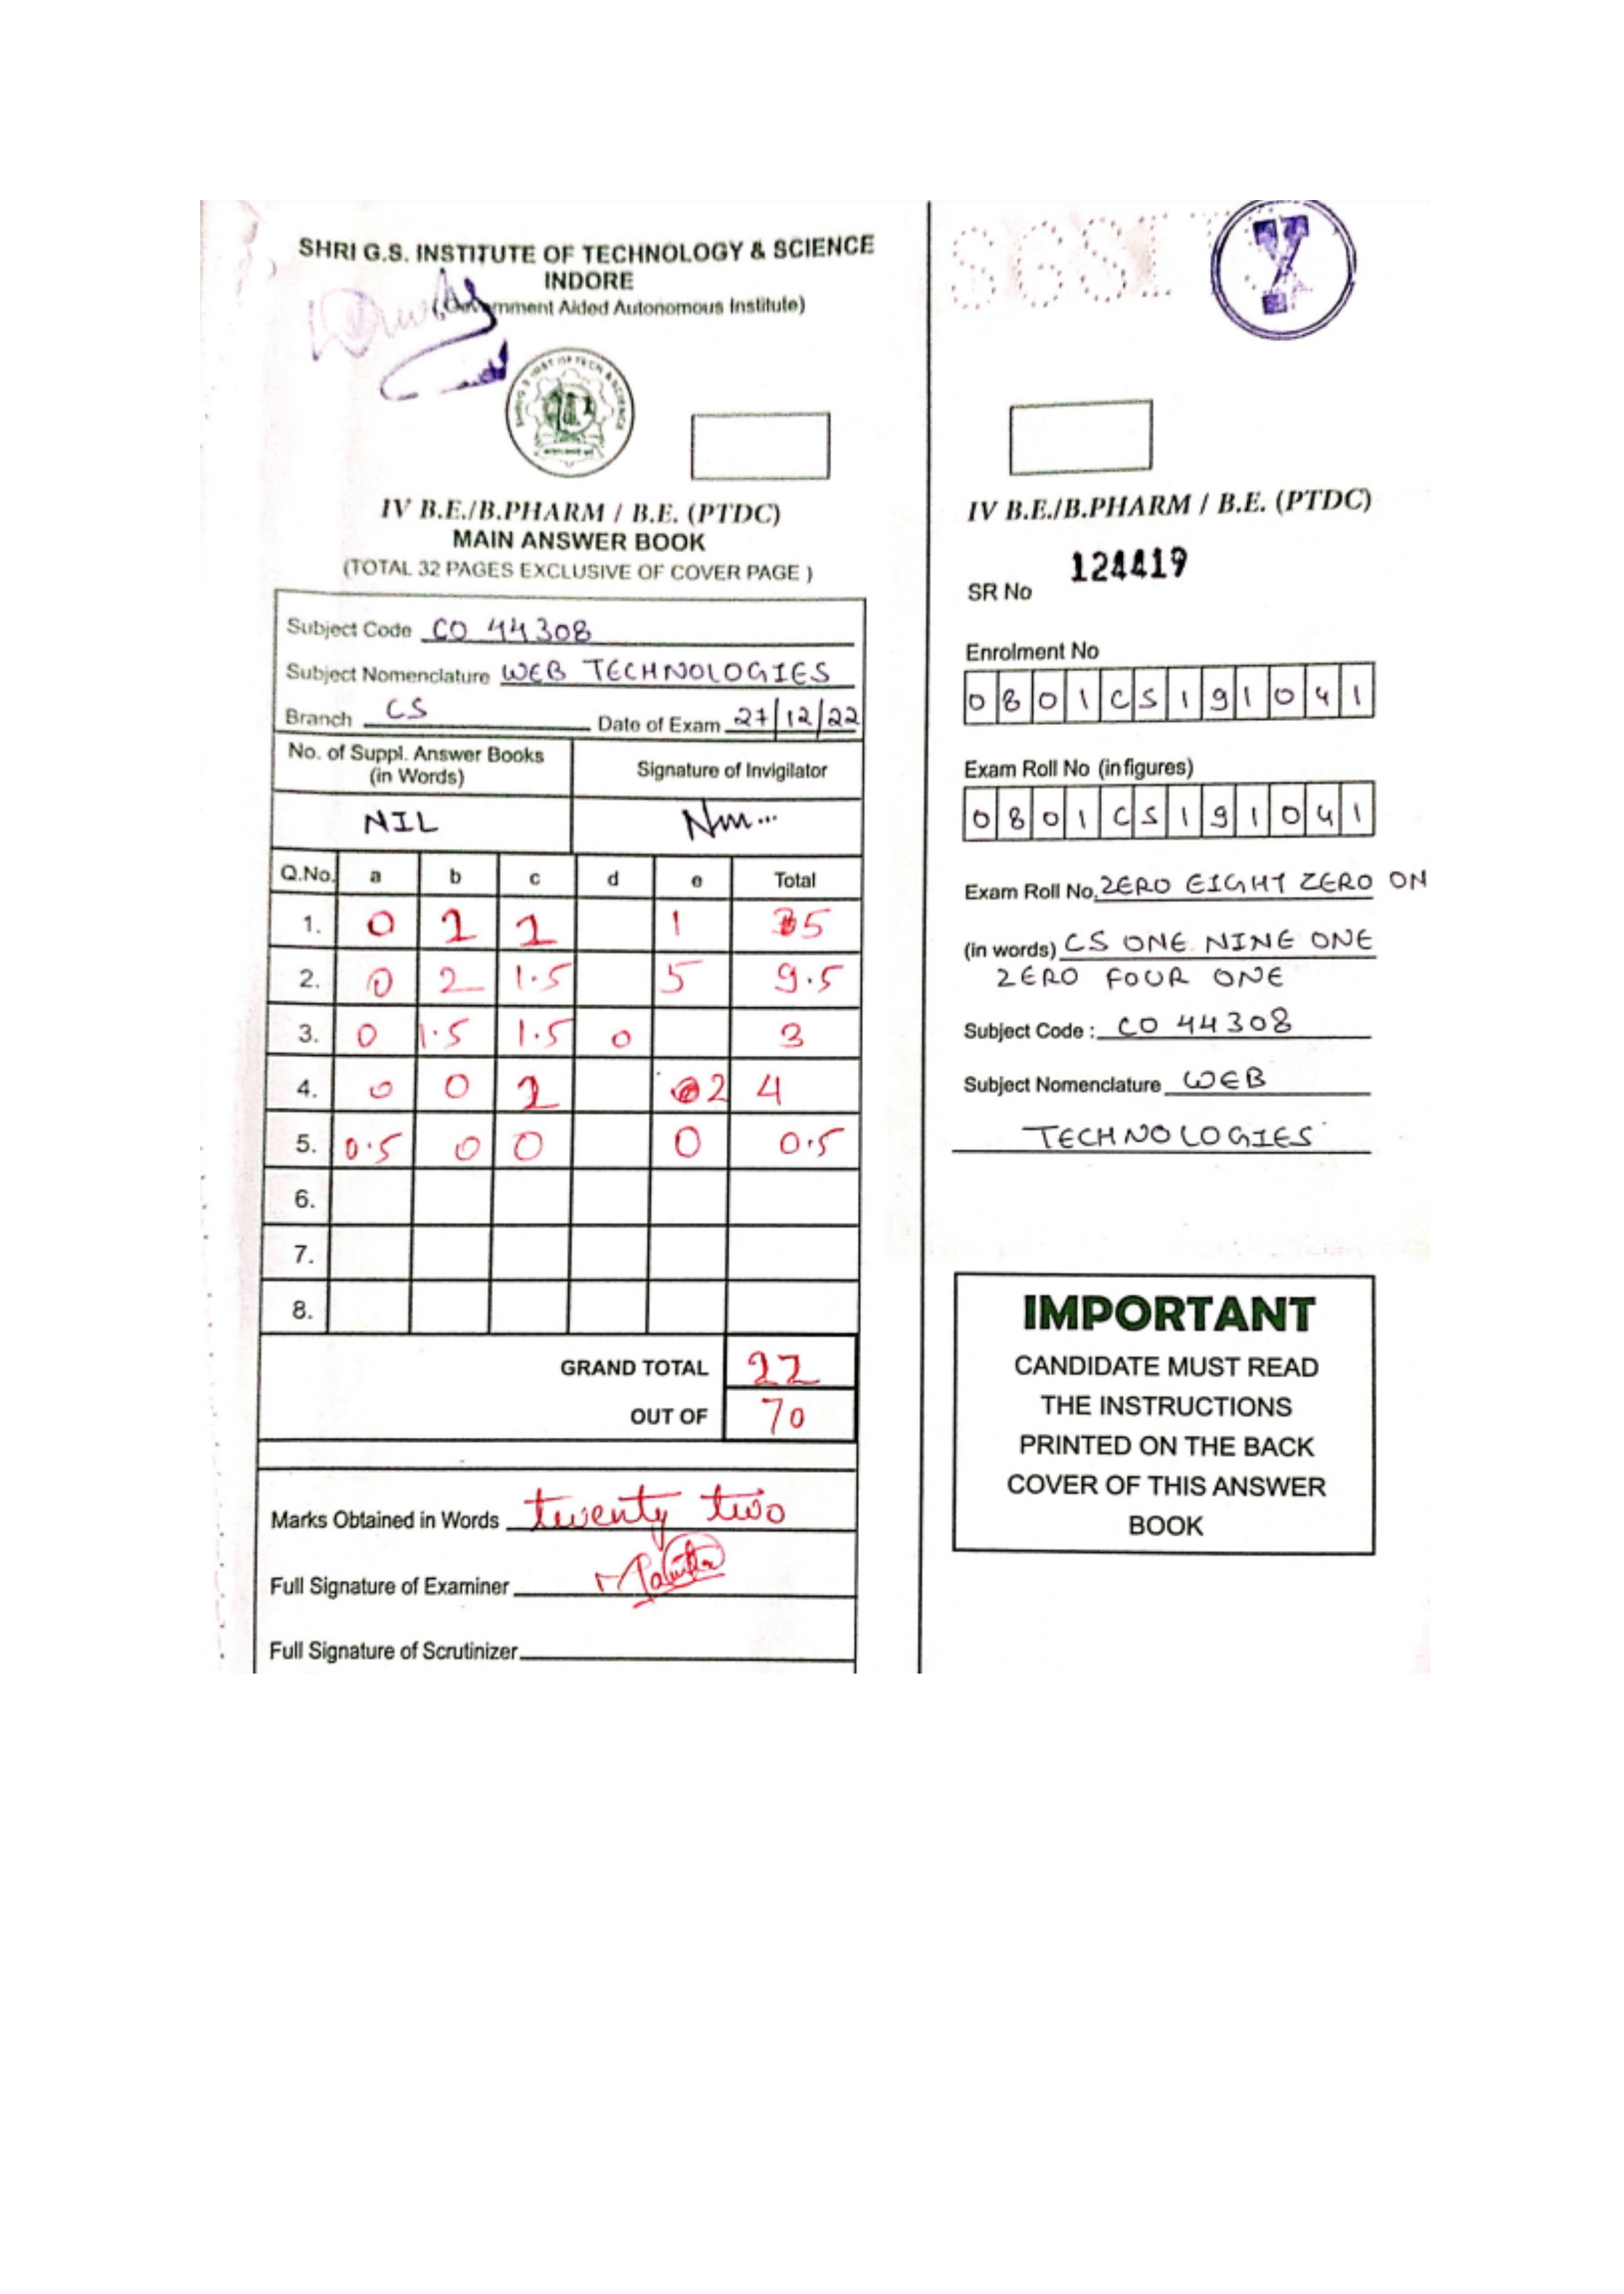 SHRI G.S. INSTITUTE OF TECHNOLOGY & SCIENCE
INDORE
(Government Aided Autonomous Institute)
IV B.E./B.PHARM / B.E. (PTDC)
MAIN ANSWER BOOK
(TOTAL 32 PAGES EXCLUSIVE OF COVER PAGE )
Subject Code CO 44308
Subject Nomenclature WEB TECHNOLOGIES
Branch CS Date of Exam 27/12/22
No. of Suppl. Answer Books Signature of Invigilator
(in Words)
NIL
Q.No. a b c d e Total
1. 0 2 2 1 5
2. 0 2 1.5 5 9.5
3. 0 1.5 1.5 0 3
4. 0 0 2 2 4
5. 0.5 0 0 0 0.5
6.
7.
8.
GRAND TOTAL 22
OUT OF 70
Marks Obtained in Words twenty two
Full Signature of Examiner
Full Signature of Scrutinizer
SGSI
Y
IV B.E./B.PHARM / B.E. (PTDC)
SR No 124419
Enrolment No
0801CS191041
Exam Roll No (in figures)
0801CS191041
Exam Roll No. ZERO EIGHT ZERO ON
(in words) CS ONE NINE ONE
ZERO FOUR ONE
Subject Code : CO 44308
Subject Nomenclature WEB
TECHNOLOGIES
IMPORTANT
CANDIDATE MUST READ
THE INSTRUCTIONS
PRINTED ON THE BACK
COVER OF THIS ANSWER
BOOK